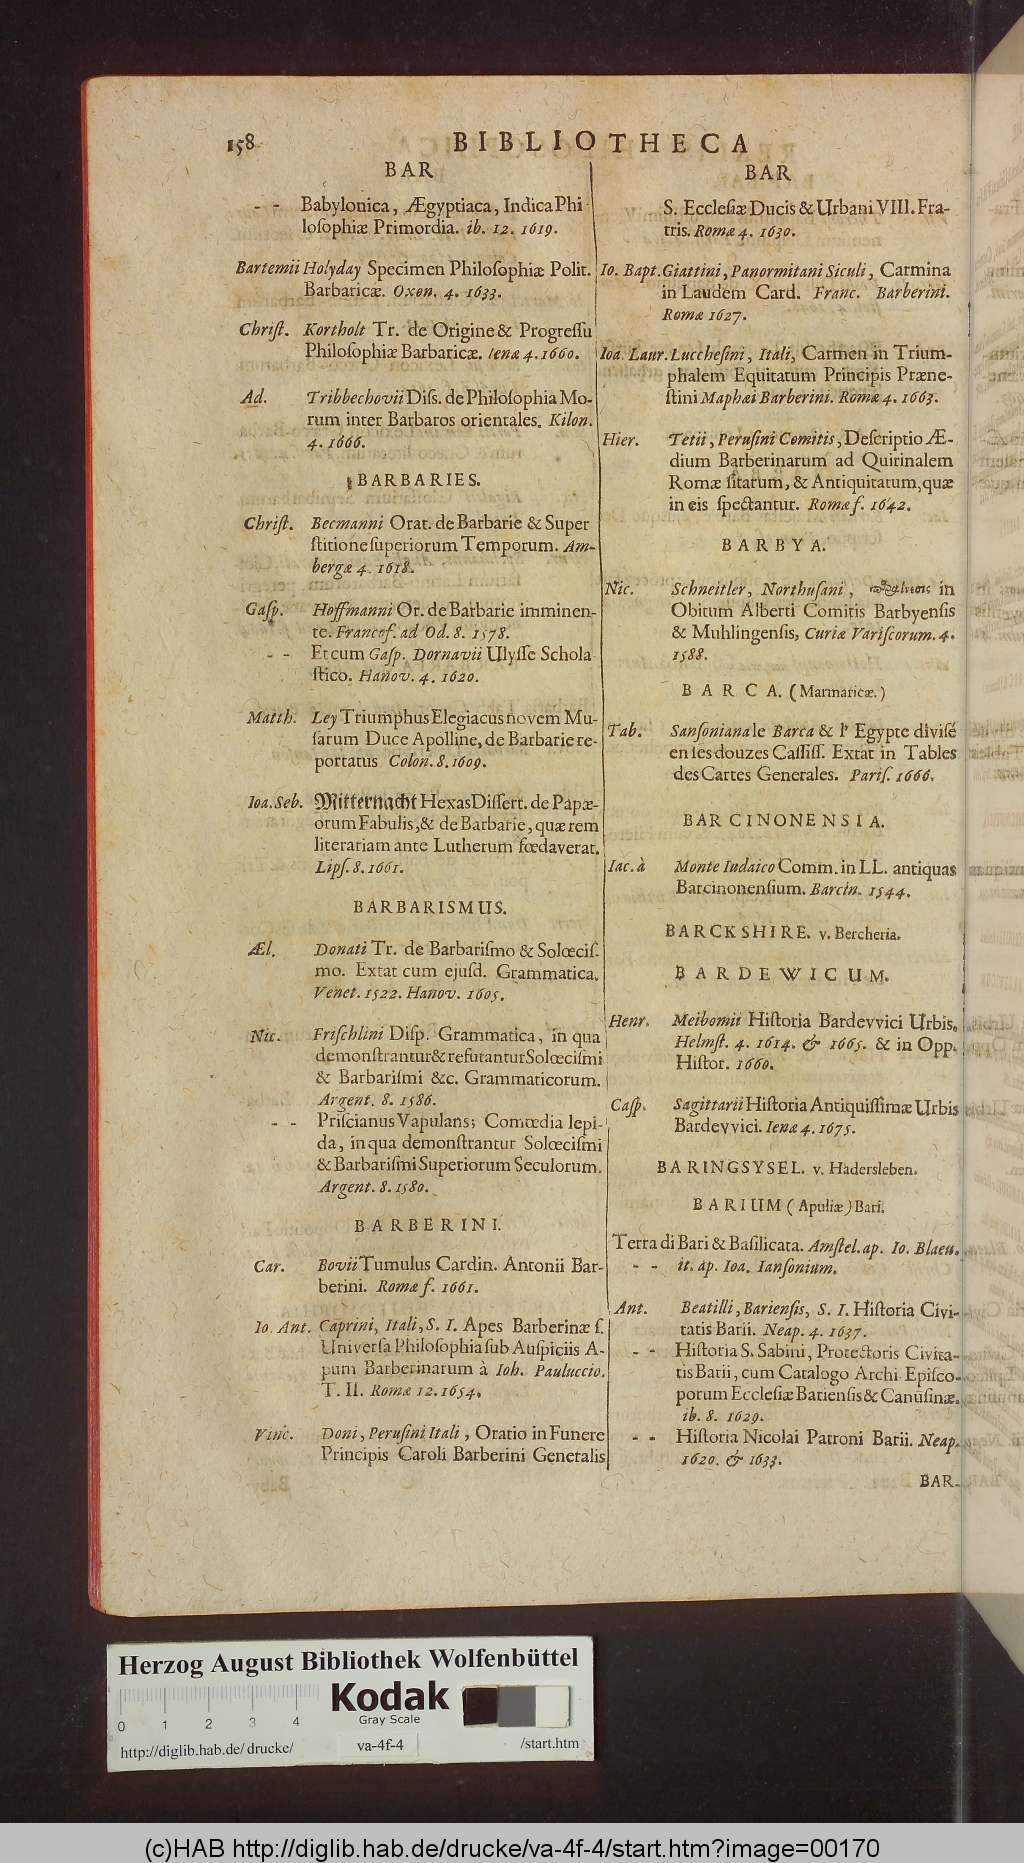 158
BIBLIOTHECA
BAR
- - Babylonica, Ægyptiaca, Indica Phi
loſophiæ Primordia. ib. 12. 1619.
Bartemii Holyday Specimen Philoſophiæ Polit.
Barbaricæ. Oxon. 4. 1633.
Chriſt. Kortholt Tr. de Origine & Progreſſu
Philoſophiæ Barbaricæ. Ienæ 4. 1660.
Ad. Tribbechovii Diſſ. de Philoſophia Mo-
rum inter Barbaros orientales. Kilon.
4. 1666.
BARBARIES.
Chriſt. Becmanni Orat. de Barbarie & Super
ſtitione ſuperiorum Temporum. Am-
bergæ 4. 1618.
Gaſp. Hoffmanni Or. de Barbarie imminen-
te. Francof. ad Od. 8. 1578.
- - Et cum Gaſp. Dornavii Ulyſſe Schola
ſtico. Hanov. 4. 1620.
Matth. Ley Triumphus Elegiacus novem Mu-
ſarum Duce Apolline, de Barbarie re-
portatus Colon. 8. 1609.
Ioa. Seb. Mitternacht Hexas Diſſert. de Papæ-
orum Fabulis, & de Barbarie, quæ rem
literariam ante Lutherum fœdaverat.
Lipſ. 8. 1661.
BARBARISMUS.
Æl. Donati Tr. de Barbariſmo & Solœciſ-
mo. Extat cum ejuſd. Grammatica.
Venet. 1522. Hanov. 1605.
Nic. Friſchlini Diſp. Grammatica, in qua
demonſtrantur & refutantur Solœciſmi
& Barbariſmi &c. Grammaticorum.
Argent. 8. 1586.
- - Priſcianus Vapulans; Comœdia lepi-
da, in qua demonſtrantur Solœciſmi
& Barbariſmi Superiorum Seculorum.
Argent. 8. 1580.
BARBERINI.
Car. Bovii Tumulus Cardin. Antonii Bar-
berini. Romæ f. 1661.
Io. Ant. Caprini, Itali, S. I. Apes Barberinæ ſ.
Univerſa Philoſophia ſub Auſpiciis A-
pum Barberinarum à Ioh. Pauluccio.
T. II. Romæ 12. 1654.
Vinc. Doni, Peruſini Itali, Oratio in Funere
Principis Caroli Barberini Generalis
BAR
S. Eccleſiæ Ducis & Urbani VIII. Fra-
tris. Romæ 4. 1630.
Io. Bapt. Giattini, Panormitani Siculi, Carmina
in Laudem Card. Franc. Barberini.
Romæ 1627.
Ioa. Laur. Lucchesini, Itali, Carmen in Trium-
phalem Equitatum Principis Præne-
ſtini Maphæi Barberini. Romæ 4. 1663.
Hier. Tetii, Peruſini Comitis, Deſcriptio Æ-
dium Barberinarum ad Quirinalem
Romæ ſitarum, & Antiquitatum, quæ
in eis ſpectantur. Romæ f. 1642.
BARBYA.
Nic. Schneitler, Northuſani, in
Obitum Alberti Comitis Barbyenſis
& Muhlingenſis, Curiæ Variſcorum. 4.
1588.
BARCA. (Marmaricæ.)
Tab. Sanſoniana le Barca & l' Egypte diviſé
en ſes douzes Caſſiſſ. Extat in Tables
des Cartes Generales. Pariſ. 1666.
BARCINONENSIA.
Iac. à Monte Iudaico Comm. in LL. antiquas
Barcinonenſium. Barcin. 1544.
BARCKSHIRE. v. Bercheria.
BARDEWICUM.
Henr. Meibomii Hiſtoria Bardevvici Urbis.
Helmſt. 4. 1614. & 1665. & in Opp.
Hiſtor. 1660.
Caſp. Sagittarii Hiſtoria Antiquiſſimæ Urbis
Bardevvici. Ienæ 4. 1675.
BARINGSYSEL. v. Hadersleben.
BARIUM (Apuliæ) Bari.
Terra di Bari & Baſilicata. Amſtel. ap. Io. Blaeu.
- - it. ap. Ioa. Ianſonium.
Ant. Beatilli, Barienſis, S. I. Hiſtoria Civi-
tatis Barii. Neap. 4. 1637.
- - Hiſtoria S. Sabini, Protectoris Civita-
tis Barii, cum Catalogo Archi Epiſco-
porum Eccleſiæ Barienſis & Canuſinæ.
ib. 8. 1629.
- - Hiſtoria Nicolai Patroni Barii. Neap.
1620. & 1633.
BAR-
Herzog August Bibliothek Wolfenbüttel
0 1 2 3 4
Kodak
Gray Scale
http://diglib.hab.de/drucke/ va-4f-4 /start.htm
(c)HAB http://diglib.hab.de/drucke/va-4f-4/start.htm?image=00170